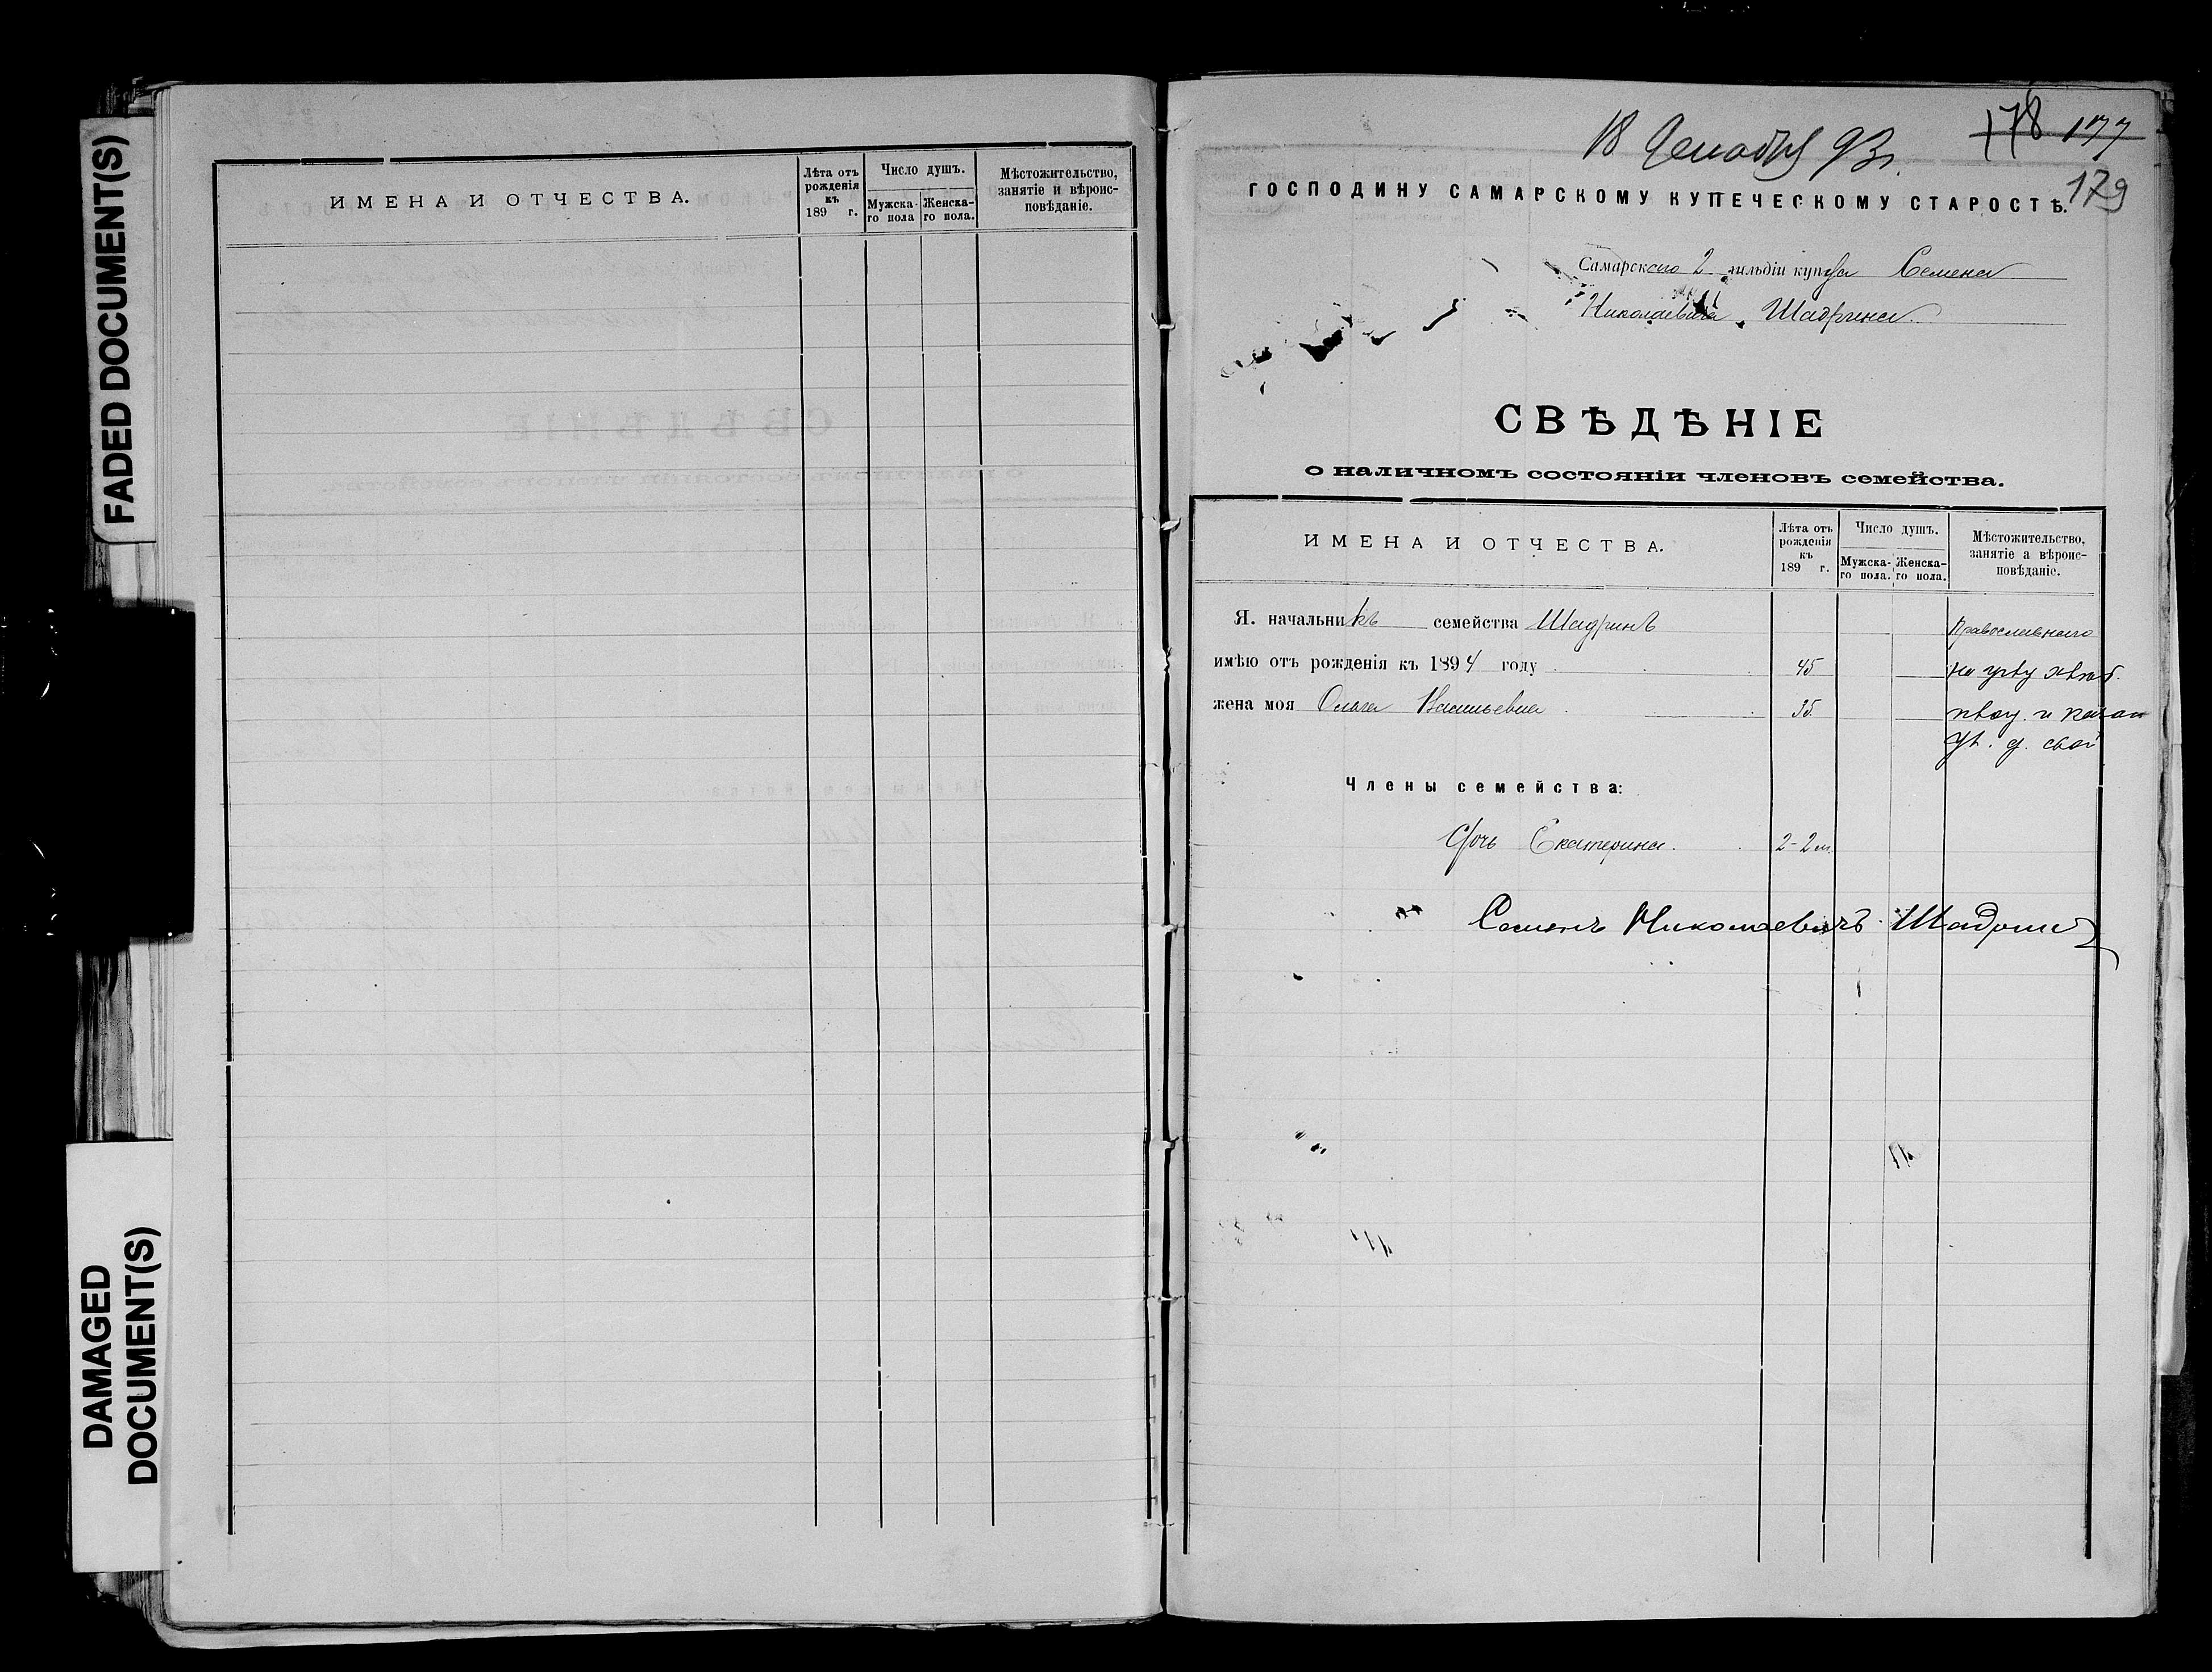 FADED DOCUMENT(S)
DAMAGED
DOCUMENT(S)
ИМЕНА И ОТЧЕСТВА.
Лѣта отъ
рожденія
къ
189 г.
Число душъ.
Мужска-
го пола
Женска-
го пола.
Мѣстожительство,
занятіе и вѣроис-
повѣданіе.
18 Декабря 93 г.
178 177
179
ГОСПОДИНУ САМАРСКОМУ КУПЕЧЕСКОМУ СТАРОСТѢ.
Самарскаго 2 гильдіи купца Семена
Николаевича Шадрина
СВѢДѢНІЕ
о наличномъ состояніи членовъ семейства.
ИМЕНА И ОТЧЕСТВА.
Лѣта отъ
рожденія
къ
189 г.
Число душъ.
Мужска-
го пола.
Женска-
го пола.
Мѣстожительство,
занятіе а вѣроис-
повѣданіе.
Я. начальникъ семейства Шадринъ
Православнаго
имѣю отъ рожденія къ 1894 году 45
жена моя Ольга Васильевна 35
д. свой
Члены семейства:
Дочь Екатерина. 2-2 м.
Семенъ Николаевичъ Шадринъ